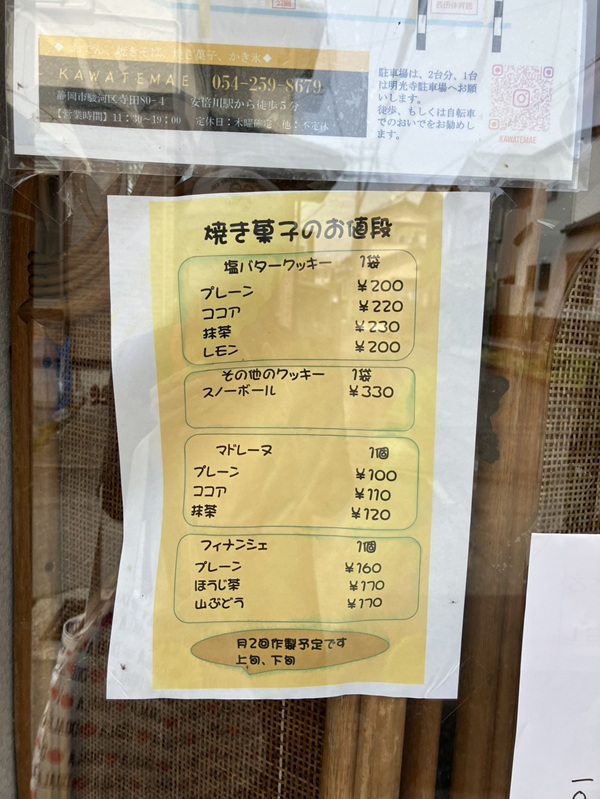 焼き菓子、かき氷
KAWATEMAE 054-259-8679
静岡市駿河区寺田80-4 安倍川駅から徒歩5分
【営業時間】11:30~19:00 定休日:木曜 他:不定休
駐車場は、2台分、1台
は明光寺駐車場へお願
いします。
徒歩、もしくは自転車
でのおいでをお勧めし
ます。
KAWATEMAE
焼き菓子のお値段
塩バタークッキー 1袋
プレーン ¥200
ココア ¥220
抹茶 ¥230
レモン ¥200
その他のクッキー 1袋
スノーボール ¥330
マドレーヌ 1個
プレーン ¥100
ココア ¥110
抹茶 ¥120
フィナンシェ 1個
プレーン ¥160
ほうじ茶 ¥170
山ぶどう ¥170
月2回作製予定です
上旬、下旬